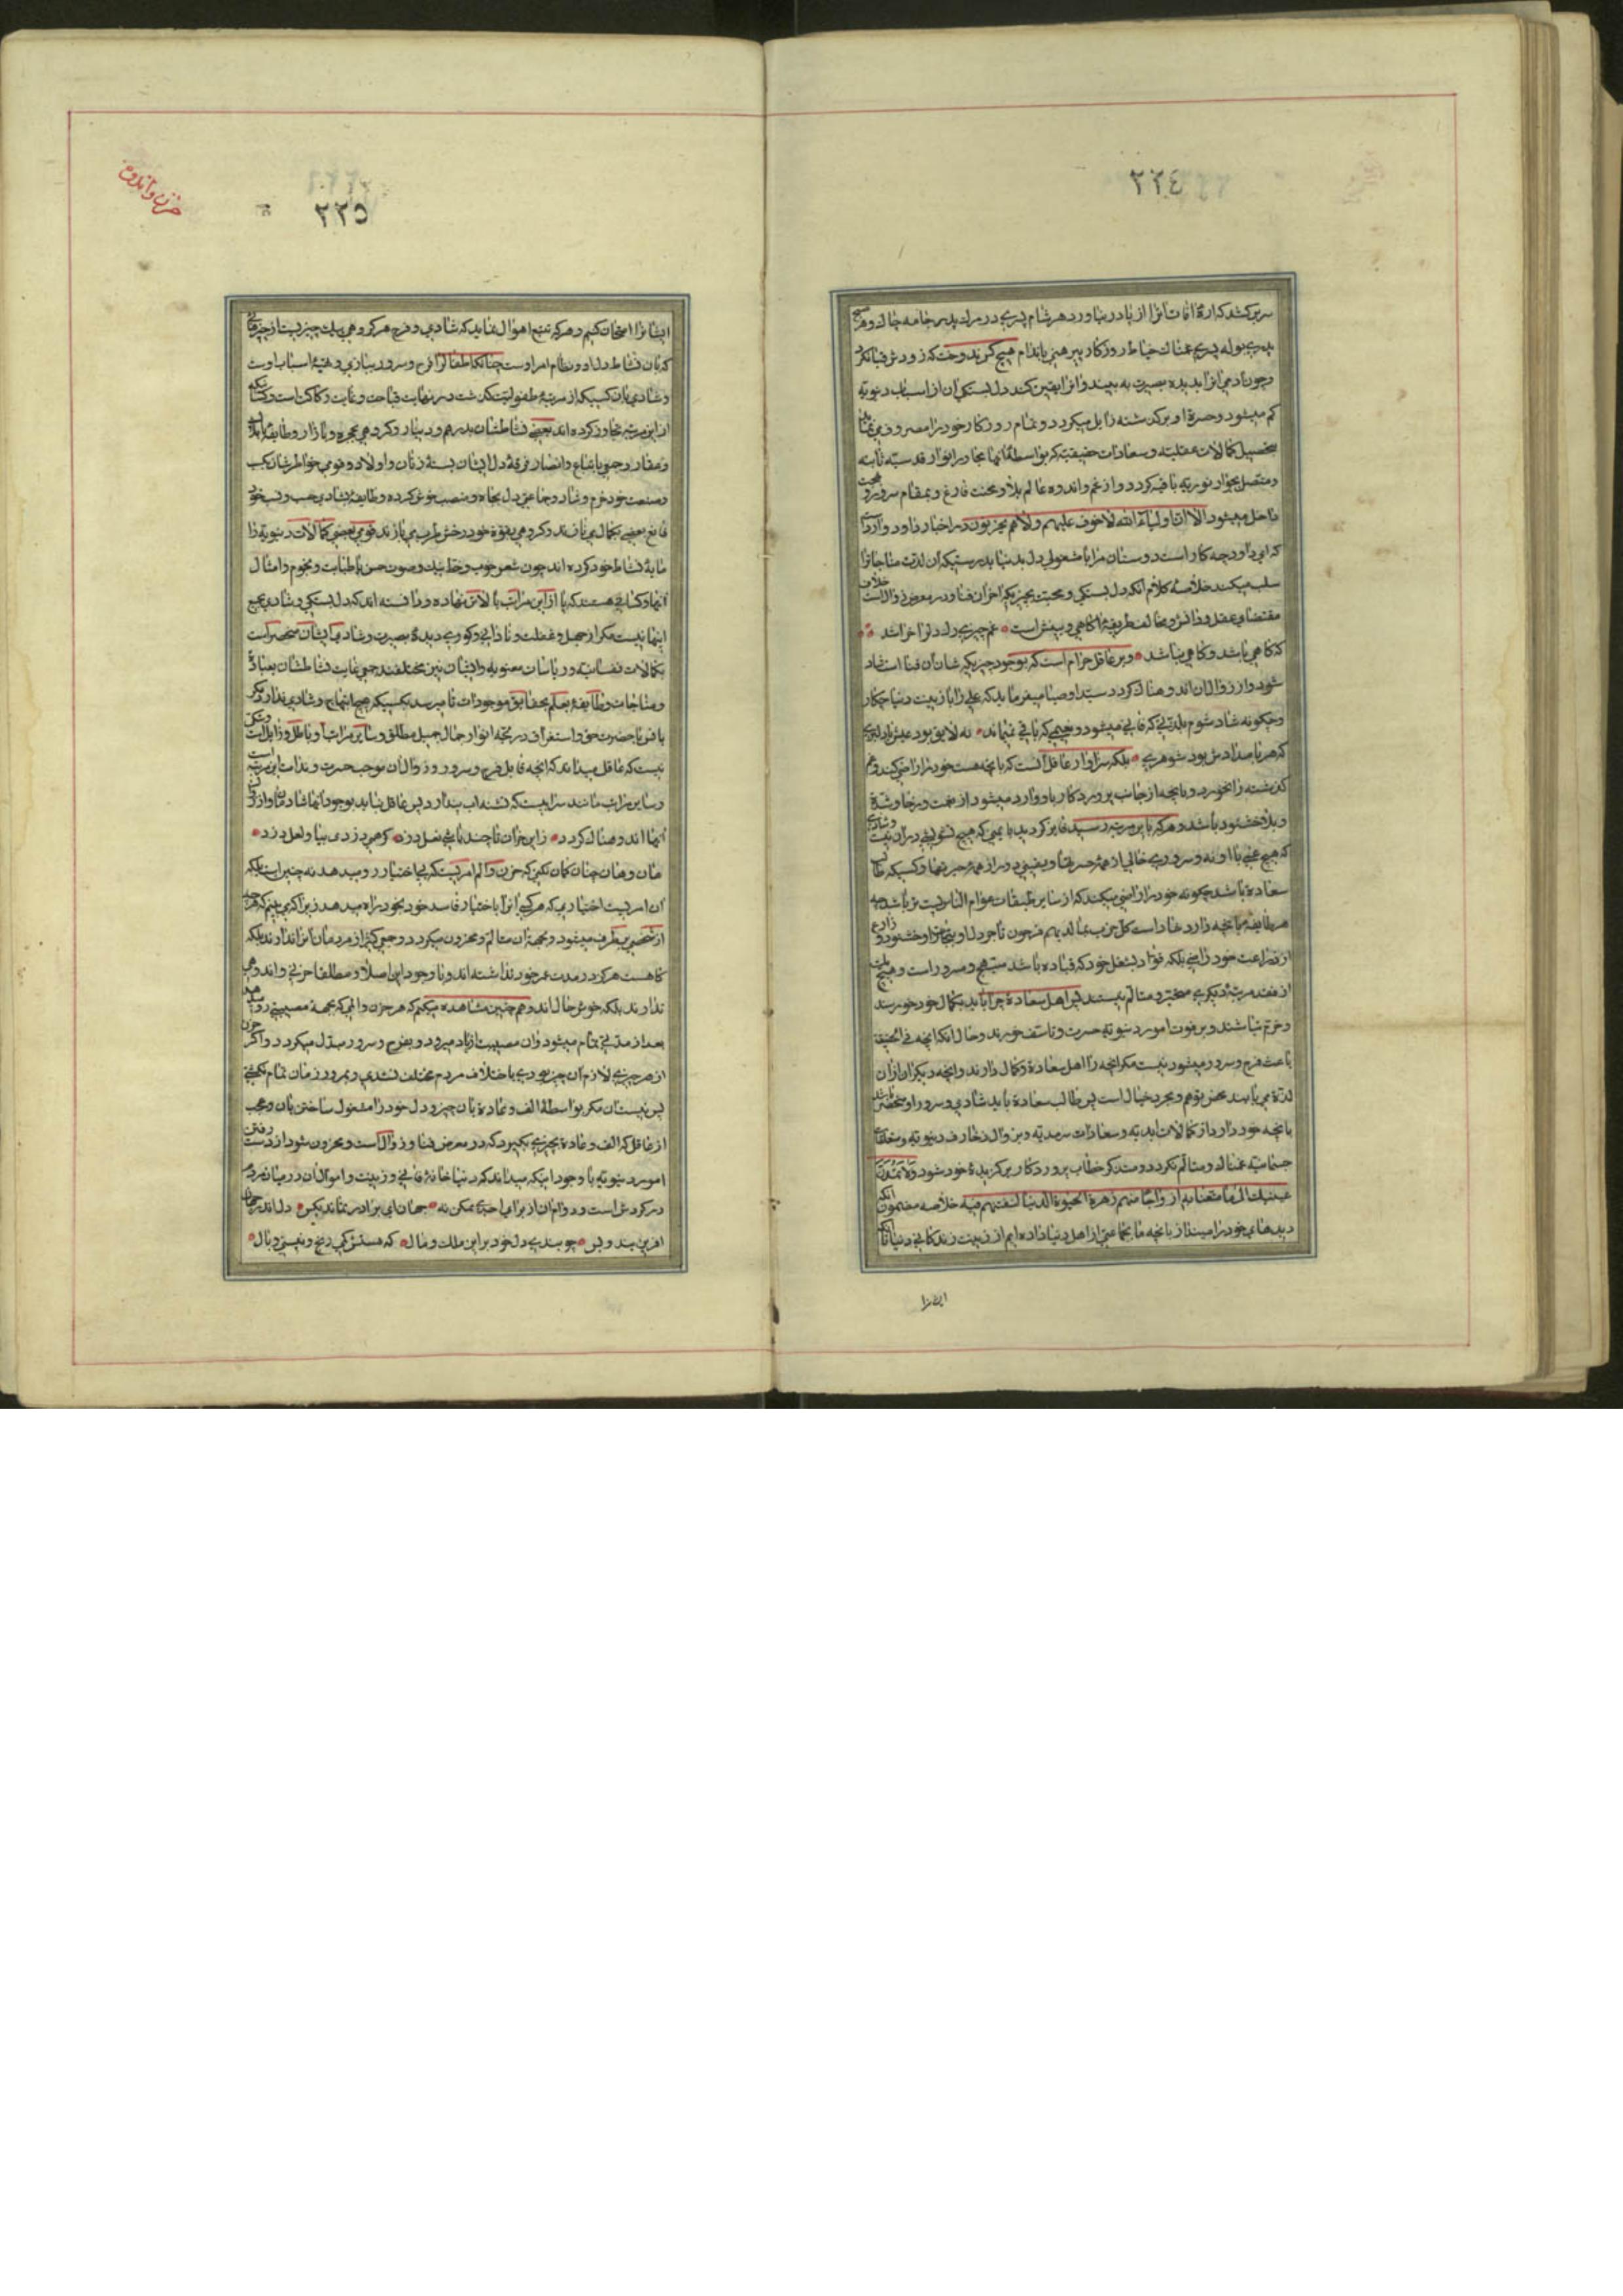 ٢٢٤
سر برکشد که اره آفات آنرا از پا در نیاورد هر شام پسری در مرك پدر جامه چاك و هر صبح
هیچ کس ندوخت که زودش قبا نکرد
و چون آدمی آنرا بدیده بصیرت به بیند و آنرا یقین کند دل بستگی آن از اسباب دنیویه
کم میشود و حسرة او بر گذشته زایل میگردد و تمام روزگار خود را مصروف مینماید
بتحصیل کمالات عقلیه و سعادات حقیقیه که بواسطه آنها مجاور انوار قدسیه ثابته
و متصل بجواهر نوریه باقیه گردد و از غم و اندوه عالم بلا و محنت فارغ و بمقام سرور و بهجت
داخل میشود الا ان اولیاء الله لا خوف علیهم ولا هم یحزنون در اخبار داود وارد است
که ای داود چه کار است دوستان مرا با مشغولی دل بدنیا بدرستیکه آن لذت مناجات را
سلب میکند خلاصه کلام آنکه دل بستگی و محبت بچیزیکه آخر آن فنا و در معرض زوال است خلاف
مقتضای عقل و دانش و مخالف طریقه آگاهی و بینش است غم چیزی رك دل را خراشد
که گاهی باشد و گاهی نباشد و بر عاقل حرام است که بوجود چیزیکه شان آن فنا است شاد
شود و از زوال آن اندوهناك گردد سید اوصیا میفرماید که علی را با زینت دنیا چکار
و چگونه شاد شوم بلذتی که فانی میشود و نعیمی که باقی نمیماند نه لایق بود عیش با دلبری
که هر بامدادش بود شوهری بلکه سزاوار عاقل آنست که بآنچه هست خود را راضی کند و غم
گذشته را نخورد و بآنچه از جانب پروردگار باو وارد میشود از نعمت و رخا و شدة
و بلا خشنود باشد و هر که باین مرتبه رسید فایز گردید بایمنی که هیچ تشویشی در آن نیست و شادی
که هیچ غمی با او نه و سروری خالی از همه حسرتها و یقینی دور از همه حیرتها و کسیکه طالب
سعادة باشد چگونه خود را راضی میکند که از سایر طبقات عوام الناس پست تر باشد چه
هر طایفه بآنچه دارد شاد است کل حزب بما لدیهم فرحون تاجر دل او بتجارت او خشنود و زارع
از زراعت خود راضی بلکه قواد بشغل خود که قیاده باشد مبتهج و مسرور است و هیچ یك
از فقد مرتبه دیگری متحیر و متالم نیستند پس اهل سعادة چرا باید بکمال خود خورسند
و خرم نباشند و بر فوت امور دنیویه حسرت و تاسف خورند و حال آنکه آنچه فی الحقیقة
باعث فرح و سرور میشود نیست مگر آنچه را اهل سعادة و کمال دارند و آنچه دیگران از آن
لذة می یابند محض توهم و مجرد خیال است پس طالب سعادة باید شادی و سرور او منحصر باشد
بآنچه خود دارد از کمالات ابدیه و سعادات سرمدیه و بزوال زخارف دنیویه و متعلقات
جسمانیه غمناك و متالم نگردد و متذکر خطاب پروردگار ببرگزیده خود شود ولا تمدن
عینیك الی ما متعنا به ازواجا منهم زهرة الحیوة الدنیا لنفتنهم فیه خلاصه مضمون آنکه
دیدهای خود را مینداز بآنچه ما بجماعتی از اهل دنیا داده ایم از زینت زندگانی دنیا تا آنکه
ایشانرا
٢٢٥
حزن و اندوه
ایشانرا امتحان کنیم و هر که تتبع احوال نماید که شادی و فرح هر گروهی بیك چیز است از چیزهائی
که بآن نشاط دل او و نظام امر اوست چنانکه اطفال را فرح و سرور ببازی و تهیه اسباب اوست
و شادی بآن کسیکه از مرتبه طفولیت گذشت در نهایت قباحت و غایت رکاکت است و کسانیکه
از این مرتبه تجاوز کرده اند بعضی نشاطشان بدرهم و دینار و گروهی بحجره و بازار و طایفه باملاك
و عقار و جمعی باتباع و انصار فرقه دل ایشان بسته زنان و اولاد و قومی خواطرشان بکسب
و صنعت خود خرم و شاد و جماعتی دل بجاه و منصب خوش کرده و طایفه بشادی حسب و نسب خود
قانع بعضی بجمال می نازند و گروهی بقوه خود رخش طرب می تازند قومی بعضی کمالات دنیویه را
مایه نشاط خود کرده اند چون شعر خوب و خط نیك و صوت حسن یا طبابت و نجوم و امثال
آنها و کسانی هستند که پا از این مراتب بالاتر نهاده و دانسته اند که دل بستگی و شادی بجمیع
اینها نیست مگر از جهل و غفلت و نادانی و کوری دیده بصیرت و شادی ایشان منحصر است
بکمالات نفسانیه و ریاسات معنویه و ایشان نیز مختلفند جمعی غایت نشاطشان بعبادة
و مناجات و طایفه بعلم بحقایق موجودات تا میرسد بکسیکه هیچ ابتهاج و شادی ندارد مگر
بانس با حضرت حق و استغراق در لجه انوار جمال جمیل مطلق و سایر مراتب او باطل و زایل است و شکی
نیست که عاقل میداند که آنچه قابل فرح و سرور و زوال آن موجب حسرت و ندامت است این مرتبه است
و سایر مراتب مانند سرابیست که تشنه آب پندارد پس عاقل نباید بوجود آنها شادمان و از زوال
آنها اندوهناك گردد زاین خزان تا چند باشی نعل دزد گر همی دزدی بیا و لعل دزد
هان و هان چنان گمان نکنی که حزن و الم امریست که بی اختیار رو میدهد نه چنین است بلکه
آن امریست اختیاری که هر کسی آنرا باختیار فاسد خود بخود راه میدهد زیرا که می بینیم که هر چه
از شخصی برطرف میشود و بجهة آن متالم و محزون میگردد و جمعی کثیر از مردمان آنرا ندارند بلکه
گاه هست هرگز در مدت عمر خود نداشته اند و با وجود این اصلا و مطلقا حزنی و اندوهی
ندارند بلکه خوش حال اند و هم چنین مشاهده میکنیم که هر حزن و المی که بجهة مصیبتی رو میدهد
بعد از مدتی تمام میشود و آن مصیبت از یاد میرود و بفرح و سرور مبدل میگردد و اگر حزن
از هر چیزی لازم آن چیز بودی باختلاف مردم مختلف نشدی و بمرور زمان تمام نگشتی
پس نیست آن مگر بواسطه الف و عادة بآن چیز و دل خود را مشغول ساختن بآن و عجب
از عاقل که الف و عادة بچیزی بگیرد که در معرض فنا و زوال است و محزون شود از دست رفتن
امور دنیویه با وجود اینکه میداند که دنیا خانه فانی و زینت و اموال آن در میان مردم
در گردش است و دوام آن از برای احدی ممکن نه جهان ای برادر نماند بکس دل اندر جهان
آفرین بند و بس چو بندی دل خود بر این ملك و مال که هستش کمی رنج و بیشی وبال